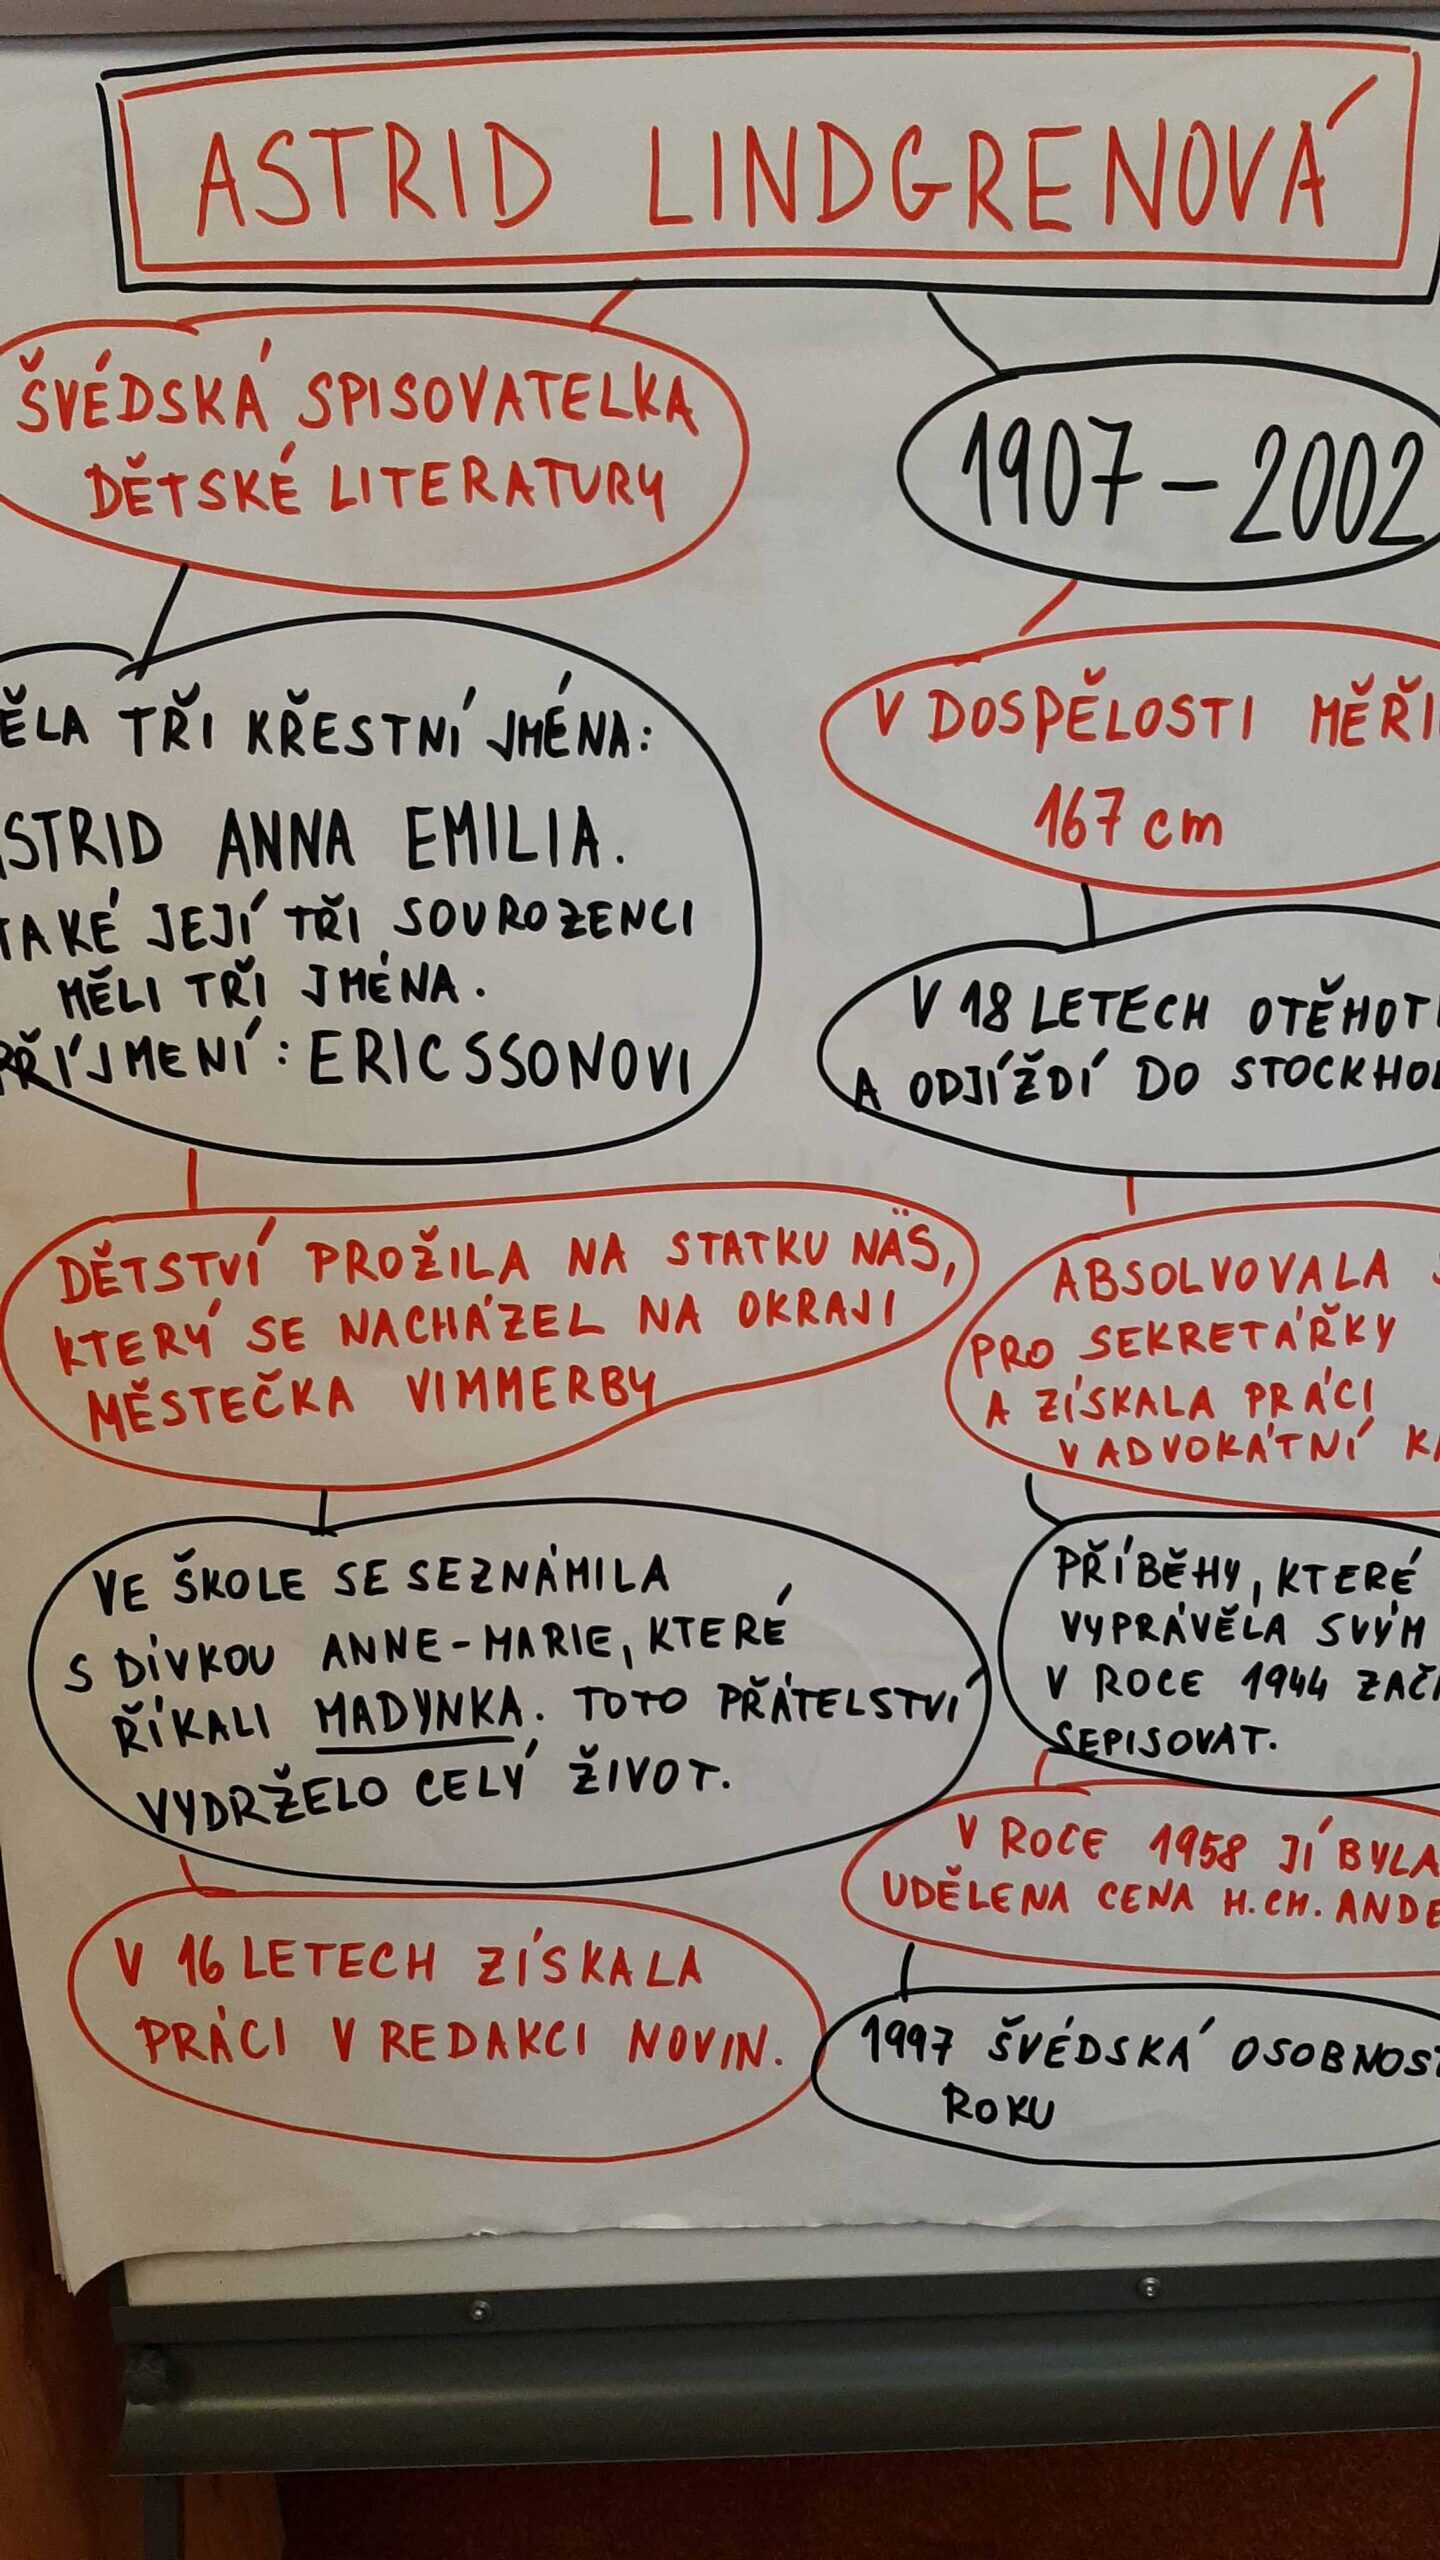 ASTRID LINDGRENOVÁ
ŠVÉDSKÁ SPISOVATELKA
DĚTSKÉ LITERATURY
ĚLA TŘI KŘESTNÍ JMÉNA:
ASTRID ANNA EMILIA.
TAKÉ JEJÍ TŘI SOUROZENCI
MĚLI TŘI JMÉNA.
PŘÍJMENÍ: ERICSSONOVI
DĚTSTVÍ PROŽILA NA STATKU NÄS,
KTERÝ SE NACHÁZEL NA OKRAJI
MĚSTEČKA VIMMERBY
VE ŠKOLE SE SEZNÁMILA
S DÍVKOU ANNE-MARIE, KTERÉ
ŘÍKALI MADYNKA. TOTO PŘÁTELSTVÍ
VYDRŽELO CELÝ ŽIVOT.
V 16 LETECH ZÍSKALA
PRÁCI V REDAKCI NOVIN.
1907 - 2002
V DOSPĚLOSTI MĚŘI
167 cm
V 18 LETECH OTĚHOT
A ODJÍŽDÍ DO STOCKHO
ABSOLVOVALA
PRO SEKRETÁŘKY
A ZÍSKALA PRÁCI
V ADVOKÁTNÍ KA
PŘÍBĚHY, KTERÉ
VYPRÁVĚLA SVÝM
V ROCE 1944 ZAČ
SEPISOVAT.
V ROCE 1958 JÍ BYLA
UDĚLENA CENA H.CH. ANDE
1997 ŠVÉDSKÁ OSOBNOST
ROKU